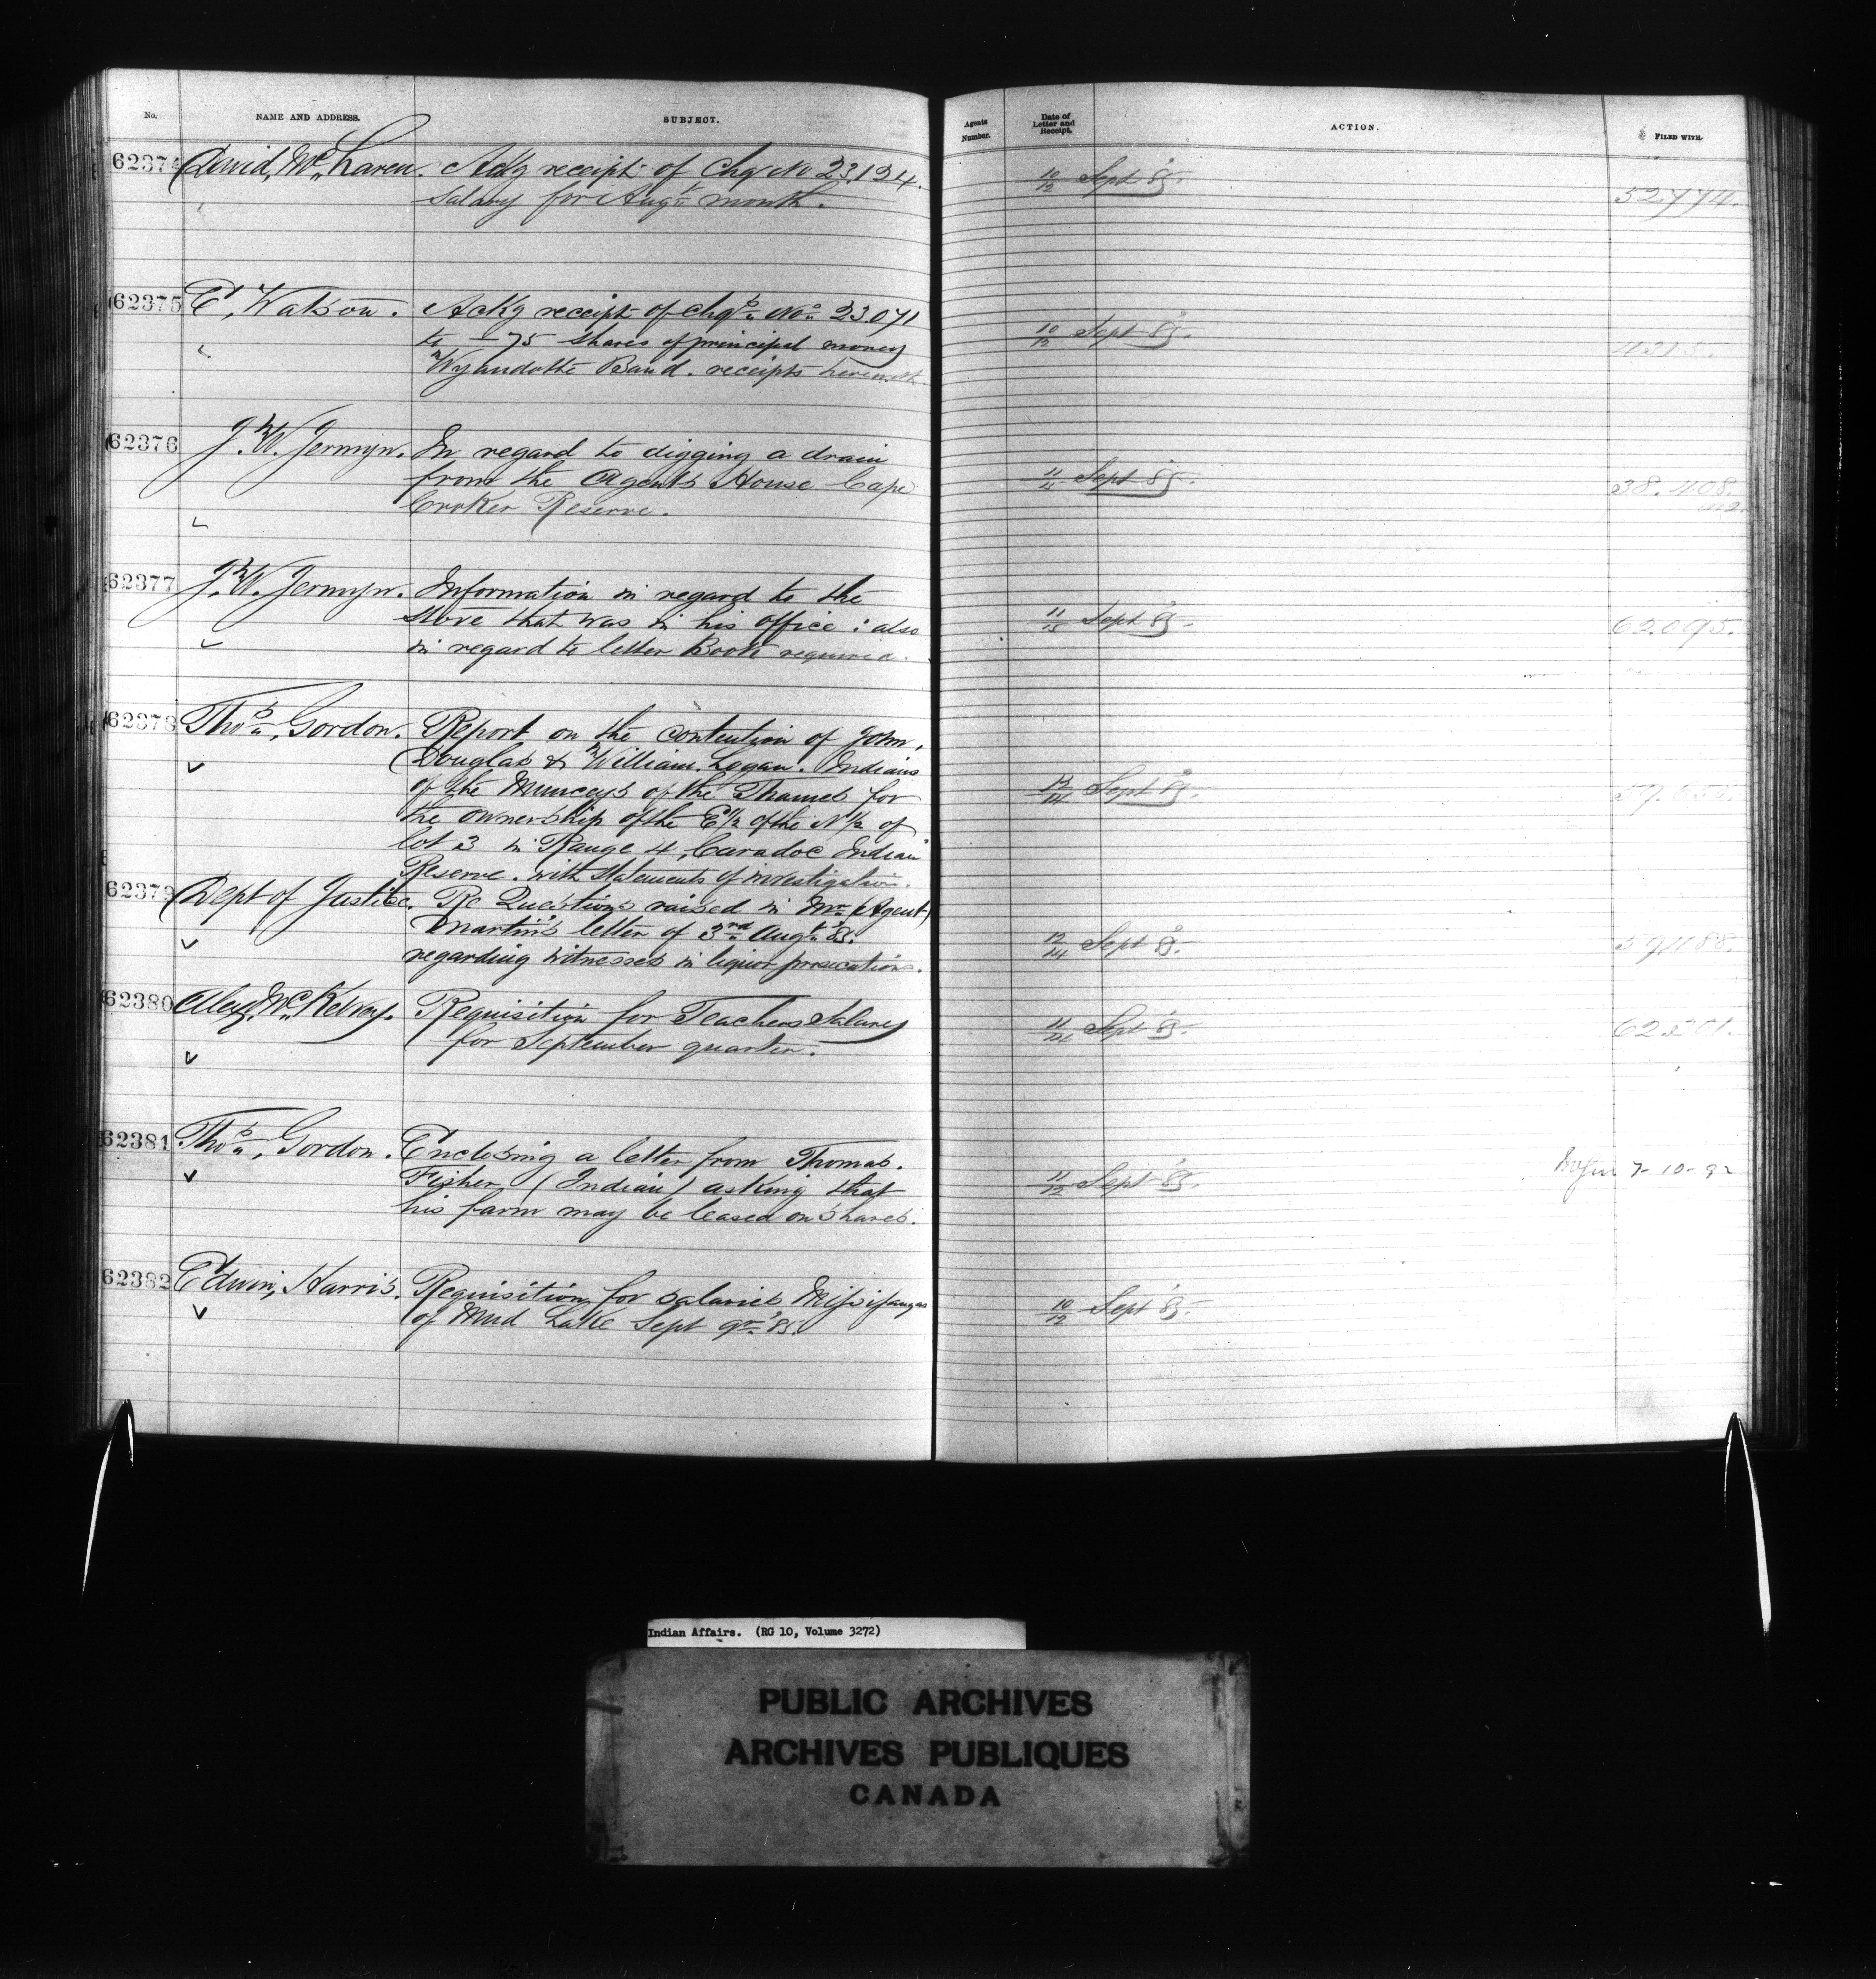 No. NAME AND ADDRESS. SUBJECT. Agents Number. Date of Letter and Receipt. ACTION. FILED WITH.
62374 David, Mc. Laren. Ackg receipt of Chq No 23.124. 10/12 Sept '85. 52,774.
Salary for Augt. month.
62375 E, Watson. Ackg receipt of chqs. Nos. 23.071 10/12 Sept '85. 4315.
to - 75 shares of principal money
Wyandotte Band. receipts herewith.
62376 J. W. Jermyn. In regard to digging a drain 11/ Sept '85. 38.408.
from the Agents House Cape
Croker Reserve.
62377 J. W. Jermyn. Information in regard to the 11/ Sept '85. 62.095.
stove that was in his office : also
in regard to letter Book required.
62378 Thos., Gordon. Report on the contention of John, 12/14 Sept '85.
Douglas & William, Logan. Indians
of the Munceys of the Thames for
the ownership of the E 1/2 of the N 1/2 of
lot 3 in Range 4, Caradoc Indian
Reserve. with statements of investigation.
62379 Dept of Justice. Re Questions raised in Mr (Agent) 12/14 Sept '85.
Martin's letter of 3rd. Augt. '85.
regarding witnesses in liquor prosecutions.
62380 Alex, Mc. Kelvey. Requisition for Teachers Salary 11/ Sept '85. 62.201.
for September quarter.
62381 Thos., Gordon. Enclosing a letter from Thomas. 11/12 Sept '85. 7-10-92
Fisher (Indian) asking that
his farm may be leased on shares.
62382 Edwin, Harris. Requisition for salaries Missisaugas 10/12 Sept '85.
of Mud Lake Sept qr. '85.
Indian Affairs. (RG 10, Volume 3272)
PUBLIC ARCHIVES
ARCHIVES PUBLIQUES
CANADA